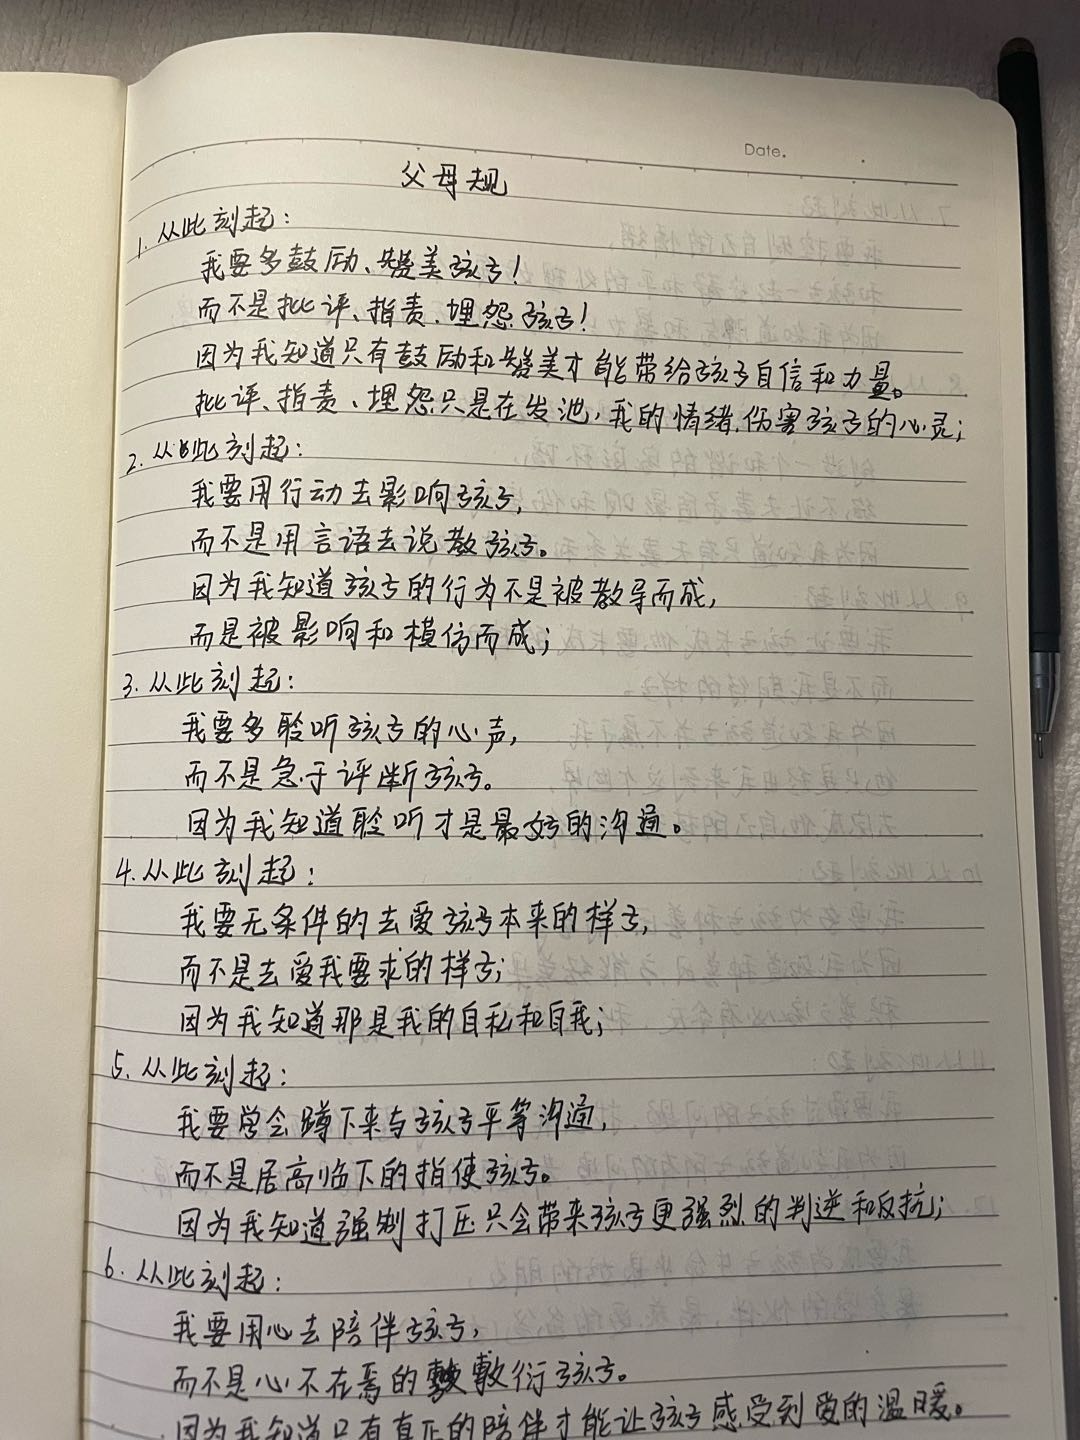 Date.
父母规
1. 从此刻起：
我要多鼓励、赞美孩子！
而不是批评、指责、埋怨孩子！
因为我知道只有鼓励和赞美才能带给孩子自信和力量。
批评、指责、埋怨只是在发池，我的情绪，伤害孩子的心灵；
2. 从此刻起：
我要用行动去影响孩子，
而不是用言语去说教孩子。
因为我知道孩子的行为不是被教导而成，
而是被影响和模仿而成；
3. 从此刻起：
我要多聆听孩子的心声，
而不是急于评断孩子。
因为我知道聆听才是最好的沟通。
4. 从此刻起：
我要无条件的去爱孩子本来的样子，
而不是去爱我要求的样子；
因为我知道那是我的自私和自我；
5. 从此刻起：
我要学会蹲下来与孩子平等沟通，
而不是居高临下的指使孩子。
因为我知道强制打压只会带来孩子更强烈的判逆和反抗；
6. 从此刻起：
我要用心去陪伴孩子，
而不是心不在焉的敷衍孩子。
因为我知道只有真正的陪伴才能让孩子感受到爱的温暖。